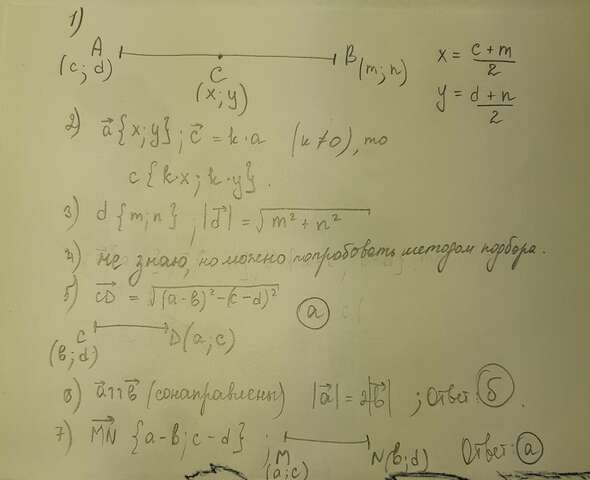 1)
A B C
(c; d) (x; y) (m; n)
x = c + m / 2
y = d + n / 2
2) a⃗ {x; y} ; c⃗ = k · a (k ≠ 0), то
c {k·x; k·y}.
3) d {m; n} , |d⃗| = √m² + n²
4) не знаю, но можно попробовать методом подбора.
5) CD⃗ = √(a-в)² - (c-d)² а
C D(a; c)
(в; d)
6) a⃗ ⇈ в⃗ (сонаправлены) |a⃗| = 2|в⃗| ; Ответ: б.
7) MN⃗ {a-в; c-d} ; M N(в; d) Ответ: а
(a; c)